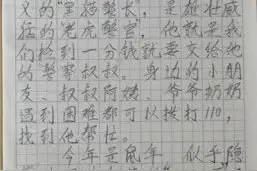 义的"黑猫警长，是雄壮威
猛的老虎警官，他就是我
们捡到一分钱就要交给他
的警察叔叔。身边的小朋
友、叔叔阿姨、爷爷奶奶
遇到困难都可以拨打110，
找到他帮忙。
今年是鼠年 似乎隐